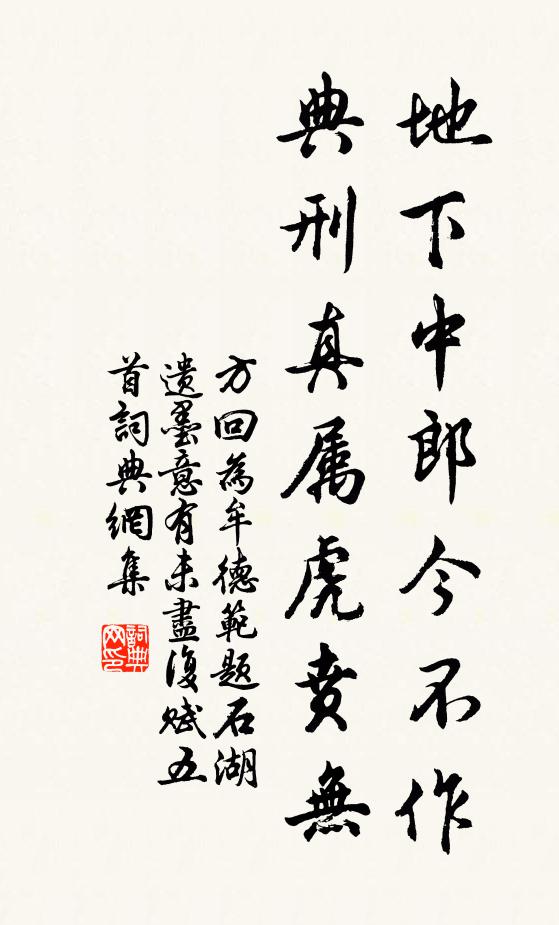 地下中郎今不作
典刑真属虎賁無
方回為牟德範题石湖
遺墨意有未盡復赋五
首詞典網集
詞典网印